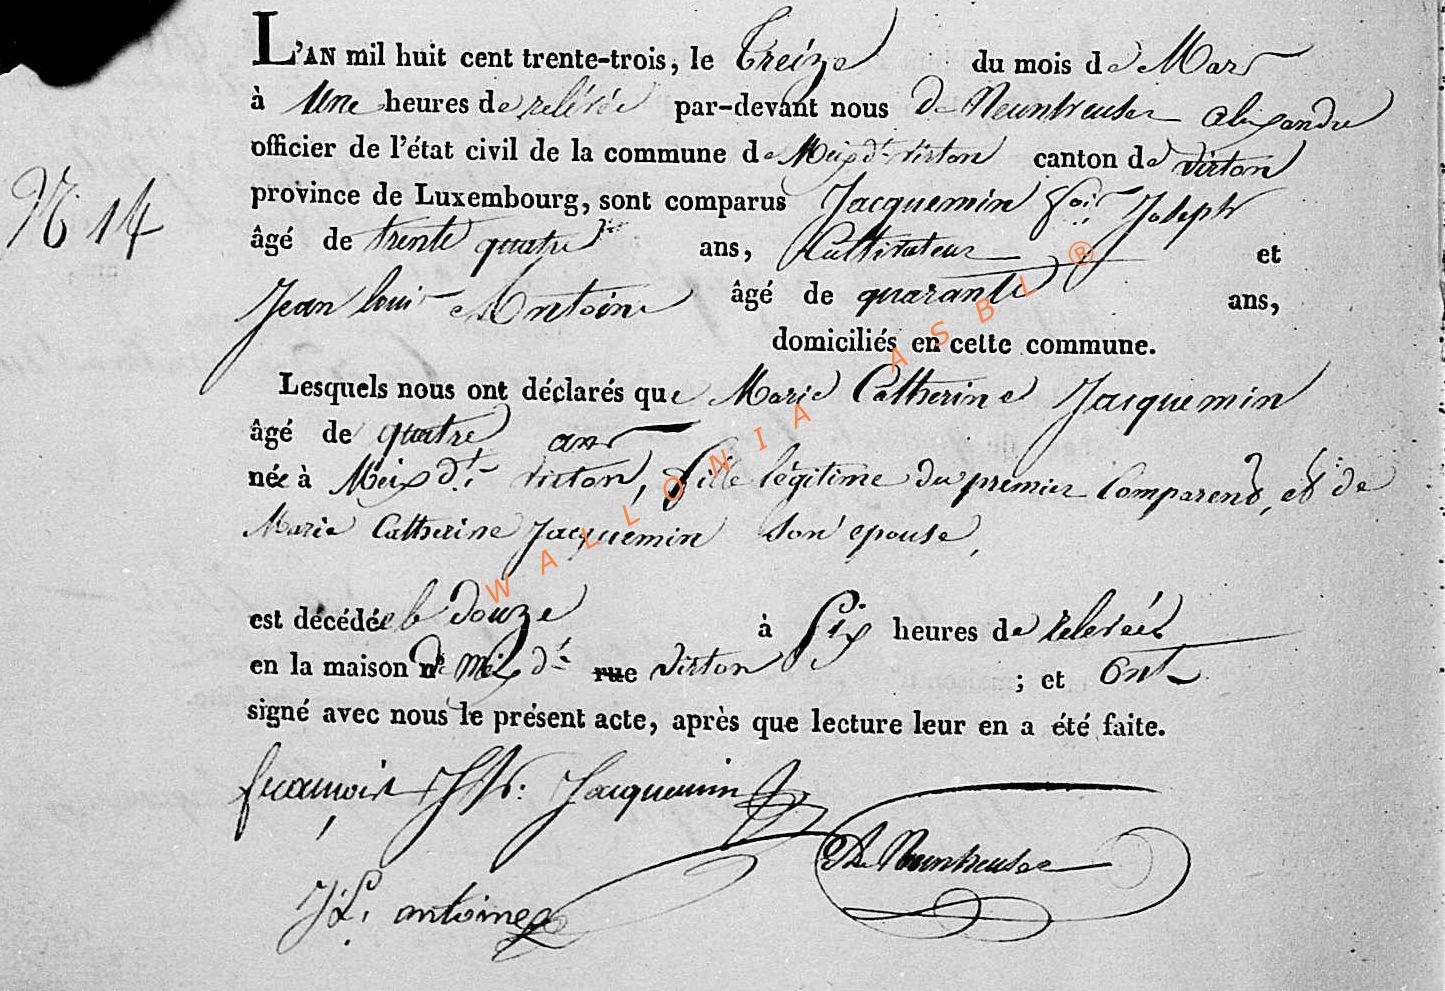 L'AN mil huit cent trente-trois, le Treize du mois de Mars
à Une heures de relevée par-devant nous De Neuntreuser alexandre
officier de l'état civil de la commune de Meix dt. virton canton de virton
N° 14
province de Luxembourg, sont comparus Jacquemin fois Joseph
âgé de trente quatre ans, Cultivateur et
Jean louis Antoine âgé de quarante ans,
domiciliés en cette commune.
Lesquels nous ont déclarés que Marie Catherine Jacquemin
âgé de quatre ans
née à Meix dt. virton, fille légitime du premier Comparent, et de
Marie Catherine Jacquemin son epouse,
est décédée le douze à Six heures de relevée
en la maison de Meix dt. rue virton ; et Ont
signé avec nous le présent acte, après que lecture leur en a été faite.
françois Jph: Jacquemin
De Neuntreuser
J L. antoine
WALLONIA ASBL ®